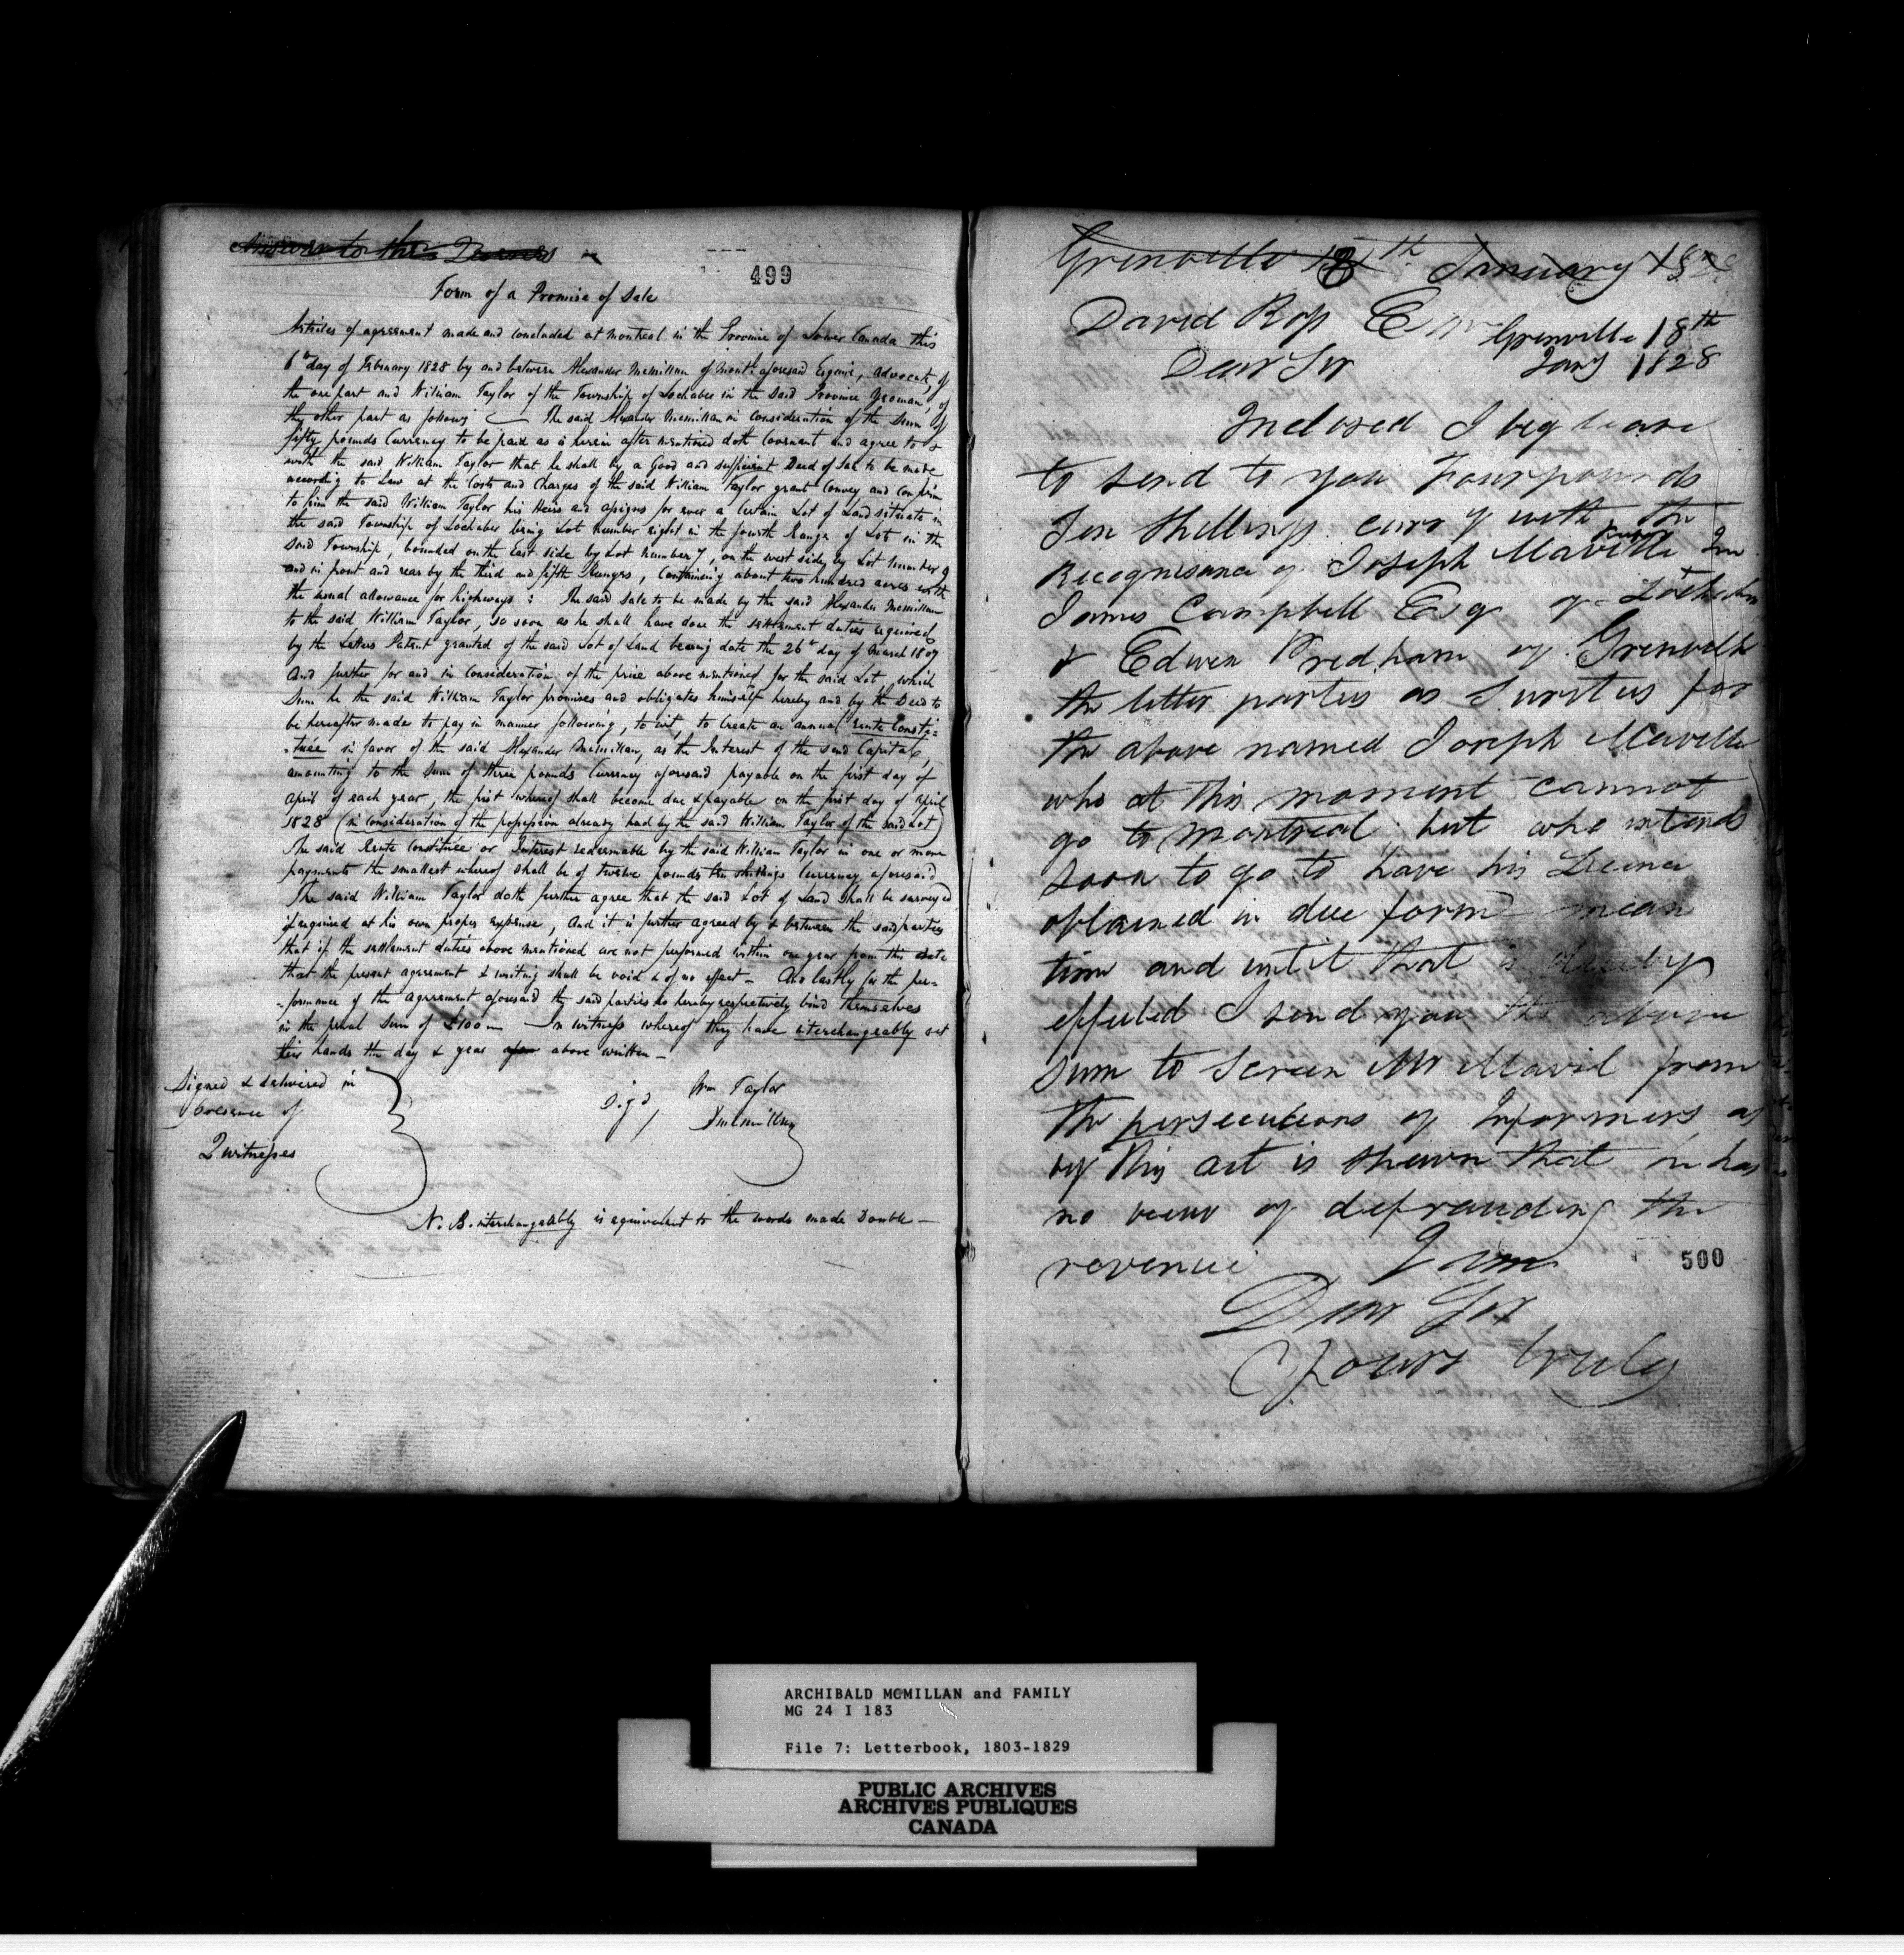 Answer to the
499
Form of a Promise of Sale
Articles of agreement made and concluded at Montreal in the Province of Lower Canada this
6th day of February 1828 by and between Alexander Mcmillan of Montl. aforesaid Esquire, advocate, of
the one part and William Taylor of the Township of Lochaber in the said Province Yeoman, of
the other part as follows — The said Alexander Mcmillan in consideration of the Sum of
fifty pounds Currency to be paid as is herein after mentioned doth Covenant and agree to &
with the said William Taylor that he shall by a Good and sufficient Deed of Sale to be made
according to Law at the Costs and Charges of the said William Taylor grant Convey and Confirm
to him the said William Taylor his Heirs and assigns for ever a Certain Lot of Land situate in
the said Township of Lochaber being Lot number eight in the fourth Range of Lots in the
said Township, bounded on the East side by Lot number 7, on the west side, by Lot number 9
and in front and rear by the third and fifth Ranges, Containing about two hundred acres with
the usual allowance for highways : The said Sale to be made by the said Alexander Mcmillan
to the said William Taylor, so soon as he shall have done the settlement duties required
by the Letters Patent granted of the said Lot of Land bearing date the 26th day of March 1807
And further for and in Consideration of the price above mentioned for the said Lot, which
Sum he the said William Taylor promises and obligates himself hereby and by the Deed to
be hereafter made to pay in manner following, to wit, to Create an annual rente Consti=
=tuée in favor of the said Alexander Mcmillan, as the Interest of the said Capital,
amounting to the Sum of three pounds Currency aforesaid payable on the first day of
April of each year, the first whereof shall become due & payable on the first day of April
1828 (in Consideration of the possession already had by the said William Taylor of the said Lot)
The said Rente Constituée or Interest redeemable by the said William Taylor in one or more
payments the smallest whereof shall be of twelve pounds ten shillings Currency aforesaid
The said William Taylor doth further agree that the said Lot of Land shall be surveyed
if required at his own proper expense, And it is further agreed by & between the said parties
that if the settlement duties above mentioned are not performed within one year from this date
that the present agreement & writing shall be void & of no effect — And lastly for the per=
=formance of the agreement aforesaid the said parties do hereby respectively bind themselves
in the penal Sum of £100 — In witness whereof they have interchangeably set
their hands the day & year above written —
Signed & delivered in
presence of
2 witnesses
Sigd / Wm Taylor
Amcmillan
N. B. interchangeably is equivalent to the words made Double —
Grenville 18th January 1828
David Ross Esqr
Grenville 18th
Jany 1828
Dear Sir
Inclosed I beg leave
to send to you Four pounds
Ten Shillings curry with the
Recognisance of Joseph Maville
James Campbell Esq of Lochaber
& Edwin Pridham of Grenville
the latter parties as Surities for
the above named Joseph Maville
who at this moment cannot
go to Montreal but who intends
soon to go to have his License
obtained in due form mean
time and until that is
effected I send you the above
sum to screen Mr Mavil from
the persecutions of Informers, as
by this act is shewn that he has
no view of defrauding the
revenue I am
500
Dear Sir
Yours truly
ARCHIBALD MCMILLAN and FAMILY
MG 24 I 183
File 7: Letterbook, 1803-1829
PUBLIC ARCHIVES
ARCHIVES PUBLIQUES
CANADA